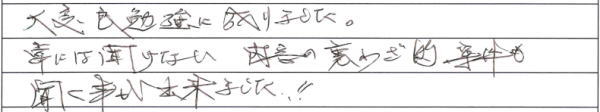 大変良勉強に成りました。
本には聞けない 内容の裏わざ的事件も
聞く事が出来ました!!